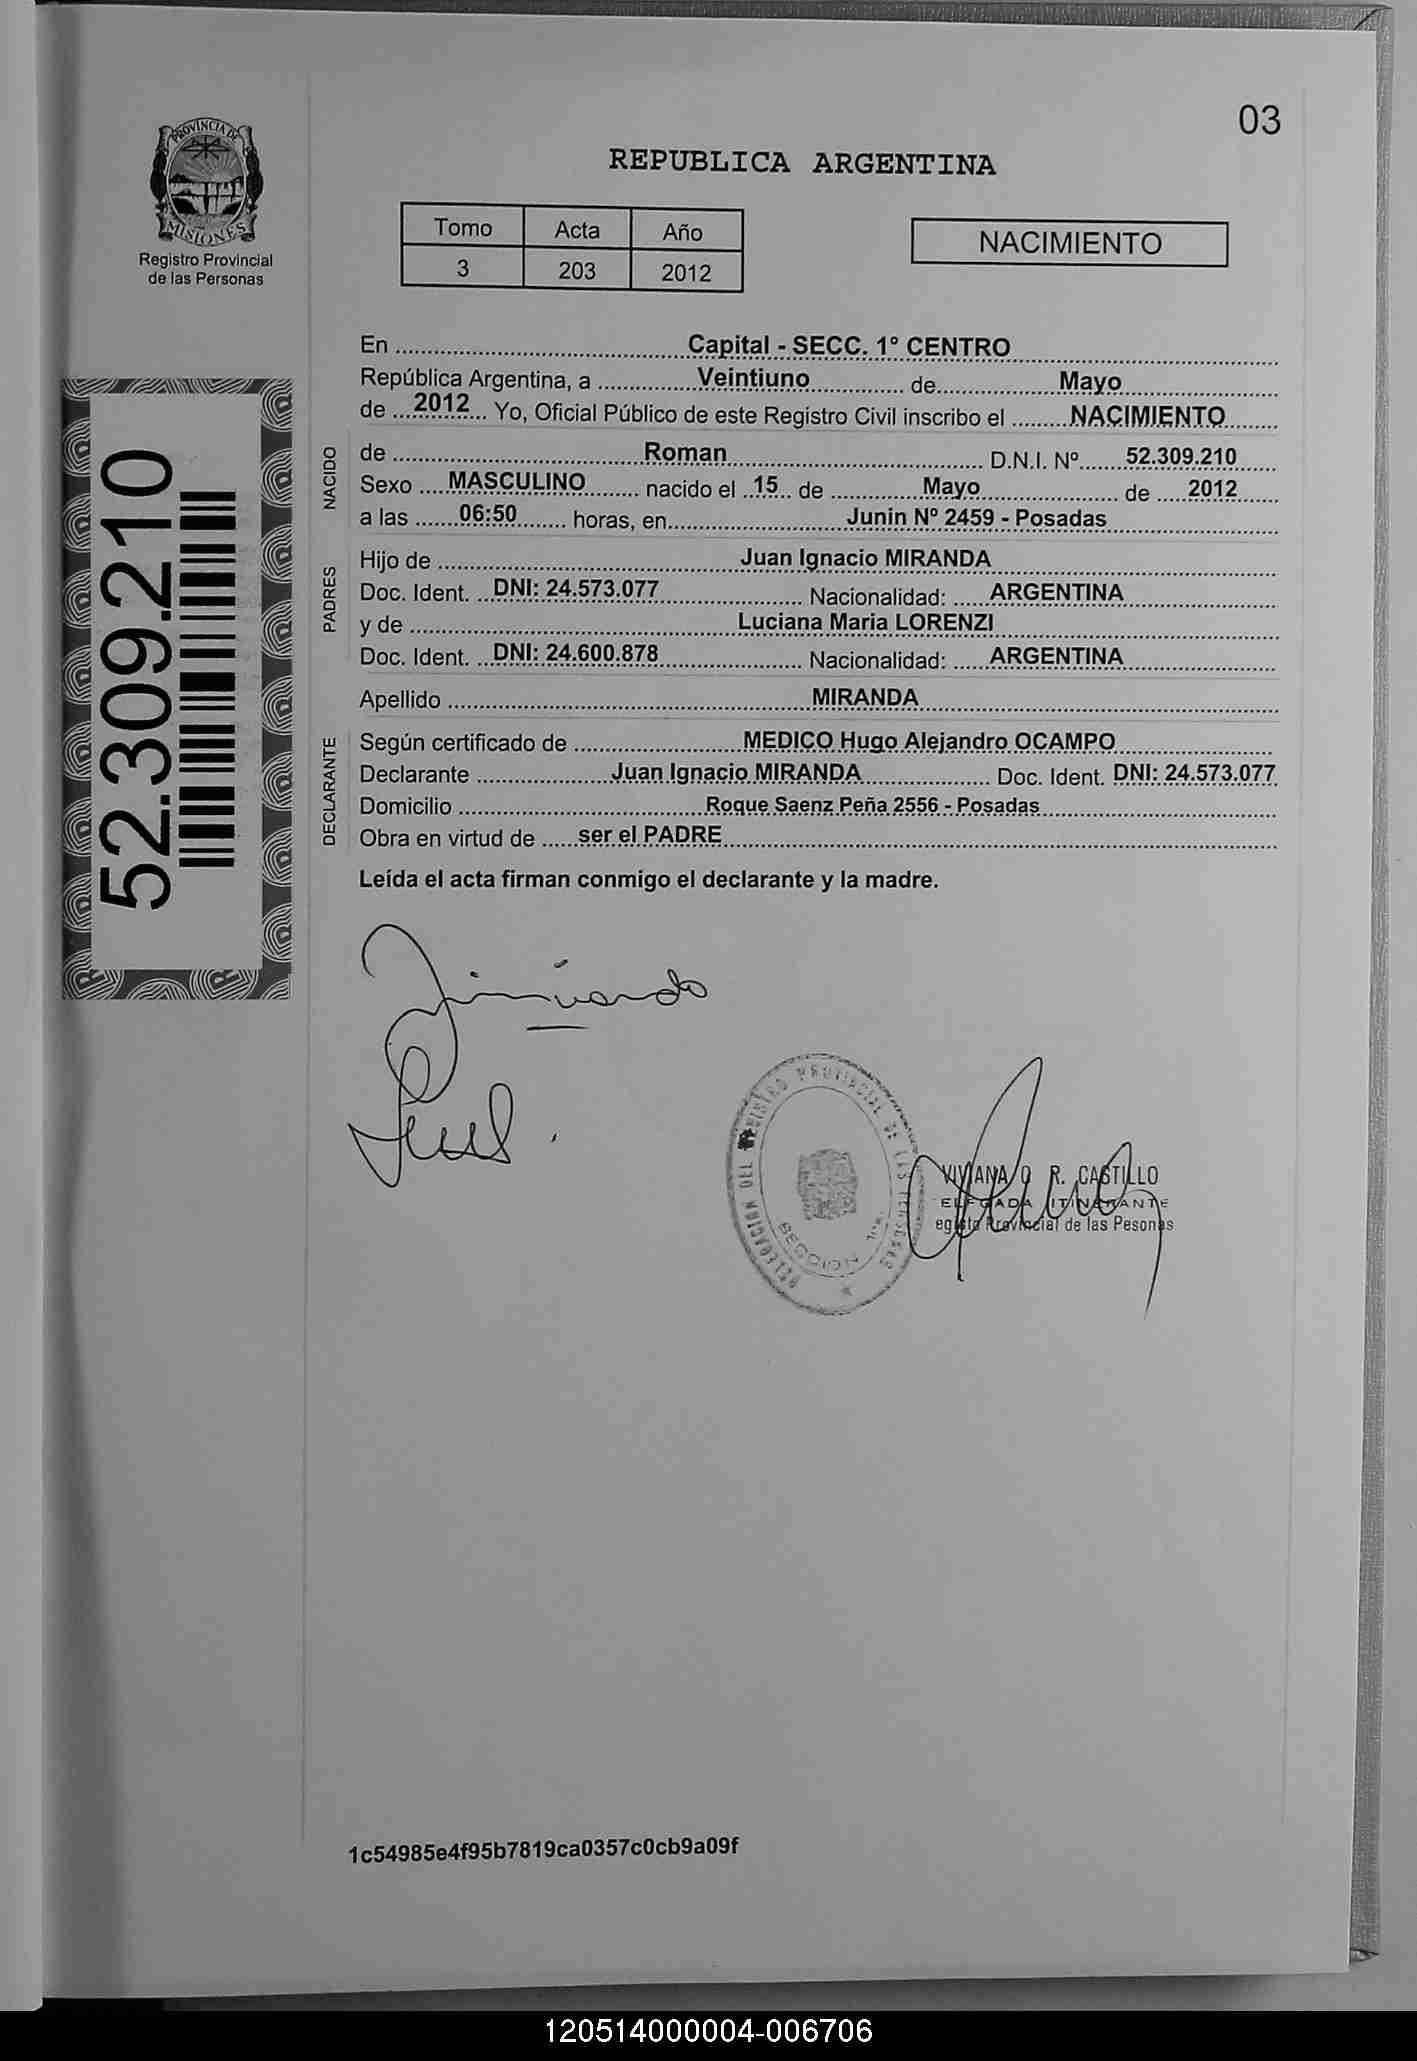 03
PROVINCIA DE
MISIONES
Registro Provincial
de las Personas
REPUBLICA ARGENTINA
Tomo Acta Año
3 203 2012
NACIMIENTO
En Capital - SECC. 1º CENTRO
República Argentina, a Veintiuno de Mayo
de 2012 Yo, Oficial Público de este Registro Civil inscribo el NACIMIENTO
NACIDO
de Roman D.N.I. Nº 52.309.210
Sexo MASCULINO nacido el 15 de Mayo de 2012
a las 06:50 horas, en Junin Nº 2459 - Posadas
PADRES
Hijo de Juan Ignacio MIRANDA
Doc. Ident. DNI: 24.573.077 Nacionalidad: ARGENTINA
y de Luciana Maria LORENZI
Doc. Ident. DNI: 24.600.878 Nacionalidad: ARGENTINA
Apellido MIRANDA
DECLARANTE
Según certificado de MEDICO Hugo Alejandro OCAMPO
Declarante Juan Ignacio MIRANDA Doc. Ident. DNI: 24.573.077
Domicilio Roque Saenz Peña 2556 - Posadas
Obra en virtud de ser el PADRE
Leída el acta firman conmigo el declarante y la madre.
52.309.210
DELEGACION DEL REGISTRO PROVINCIAL DE LAS
SECCION 1ra.
VIVIANA R. CASTILLO
ELEGADA ITINERANTE
egisto Provincial de las Pesonas
1c54985e4f95b7819ca0357c0cb9a09f
120514000004-006706